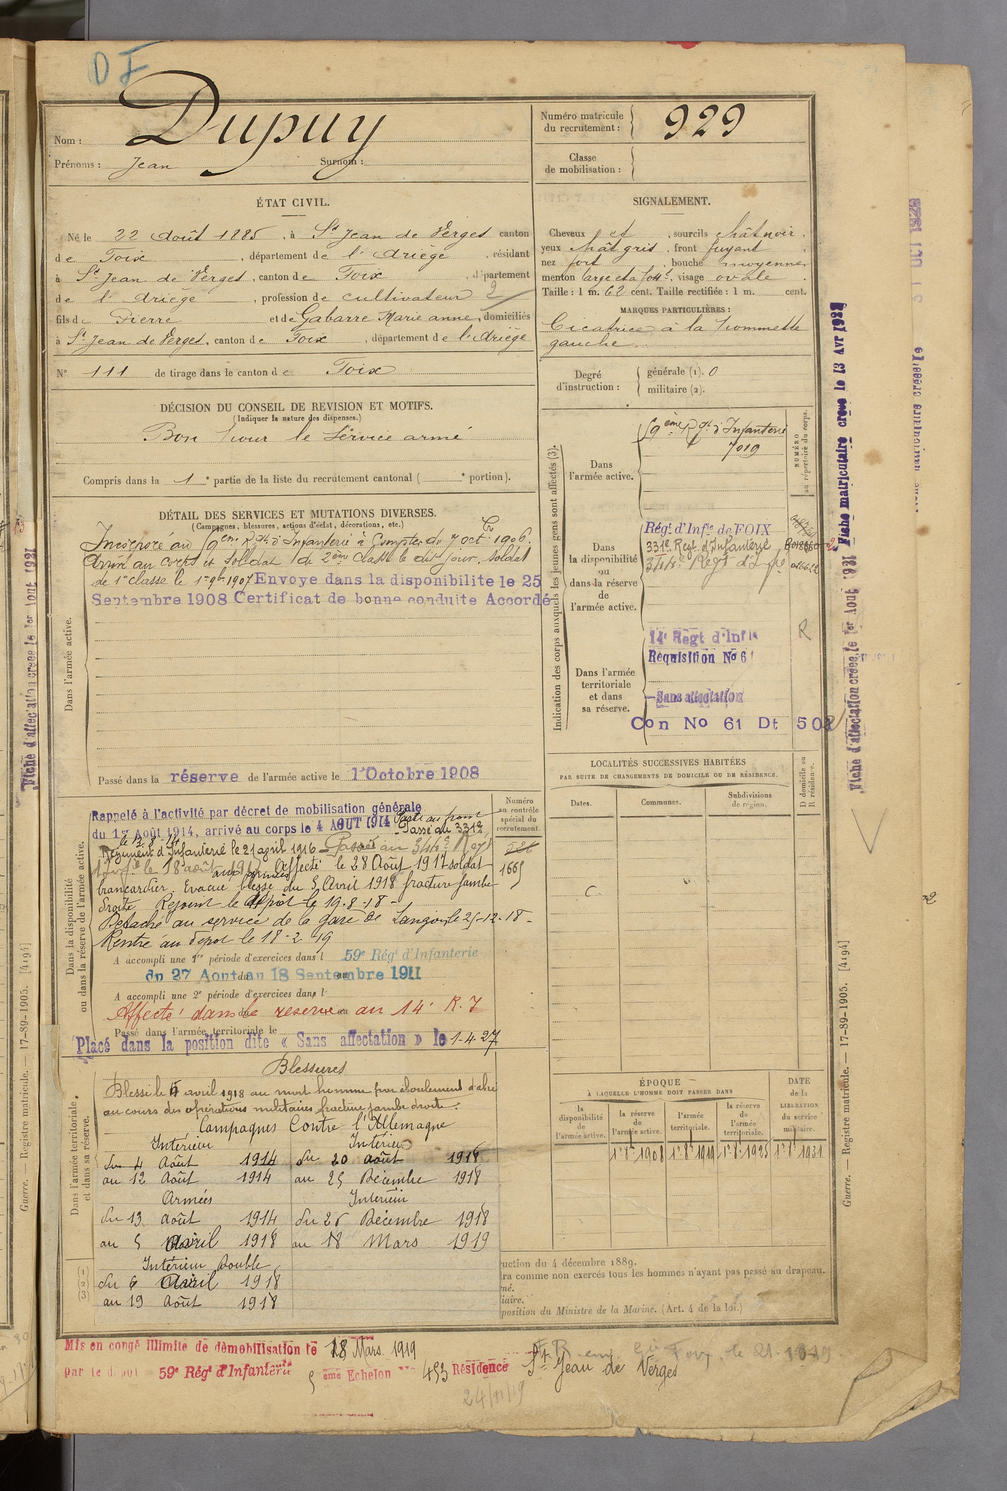 DF
Nom : Dupuy
Prénoms : Jean Surnom :
Numéro matricule
du recrutement : 929
Classe
de mobilisation :
ÉTAT CIVIL.
Né le 22 Août 1885, à St Jean de Verges canton
de Foix, département de l'Ariège, résidant
à St Jean de Verges, canton de Foix, département
de l'Ariège, profession de cultivateur 2
fils de Pierre et de Gabarre Marie anne, domiciliés
à St Jean de Verges, canton de Foix, département de l'Ariège
N° 111 de tirage dans le canton de Foix
SIGNALEMENT.
Cheveux et, sourcils chât noir.
yeux chât gris, front fuyant,
nez fort, bouche moyenne,
menton large, visage ovale.
Taille : 1 m. 62 cent. Taille rectifiée : 1 m. cent.
MARQUES PARTICULIÈRES :
Cicatrice à la pommette
gauche.
Degré
d'instruction :
générale (1). 0
militaire (2).
DÉCISION DU CONSEIL DE REVISION ET MOTIFS.
(Indiquer la nature des dispenses.)
Bon pour le Service armé
Compris dans la 1e partie de la liste du recrutement cantonal ( e portion).
DÉTAIL DES SERVICES ET MUTATIONS DIVERSES.
(Campagnes, blessures, actions d'éclat, décorations, etc.)
Dans l'armée active.
Incorporé au 59ème Rgt d'Infanterie à Compter du 7 oct 1906.
Arrivé au corps et soldat de 2ème classe le dit jour, soldat
de 1e classe le 1er 9bre 1907 Envoye dans la disponibilite le 25
Septembre 1908 Certificat de bonne conduite Accordé
Passé dans la réserve de l'armée active le 1er Octobre 1908
Indication des corps auxquels les jeunes gens sont affectés (3).
NUMÉRO
au répertoire du corps.
Dans
l'armée active.
59ème Rgt d'Infanterie
7019
Dans
la disponibilité
ou
dans la réserve
de
l'armée active.
Régt d'Infie de FOIX
331e Regt d'Infanterie
344e Régt d'Infie
Dans l'armée
territoriale
et dans
sa réserve.
14e Régt d'Infie
Requisition No 6
Sans affectation
Con No 61 Dt 502
R
Dans la disponibilité
ou dans la réserve de l'armée active.
Numéro
au contrôle
spécial du
recrutement.
1665
Rappelé à l'activité par décret de mobilisation générale
du 1er Août 1914, arrivé au corps le 4 AOUT 1914 Parti au front
le 13.8.14 Passé au 331e
Régiment d'Infanterie le 21 april 1916 Passé au 344e Régt
d'Infie le 18 août 1917 aux armées Affecté le 28 Août 1917 soldat
brancardier. Evacué blessé du 5 Avril 1918 fracture jambe
droite. Rejoint le dépôt le 19-8-18-
Détaché au service de la gare de Langon le 25-12-18-
Rentré au dépôt le 18-2-19
A accompli une 1re période d'exercices dans l 59e Régt d'Infanterie
du 27 Aout au 18 Septembre 1911
A accompli une 2e période d'exercices dans l
Affecté dans la reserve au 14e R.I
Passé dans l'armée territoriale le
Placé dans la position dite « Sans affectation » le 1-4-27
Dans l'armée territoriale,
et dans sa réserve.
Blessures
Blessé le 5 avril 1918 au mort homme par éboulement d'abri
au cours des opérations militaires fracture jambe droite.
Campagnes Contre l'Allemagne
Intérieur
du 4 Août 1914
au 12 Août 1914
Armées
du 13 août 1914
au 5 Avril 1918
Intérieur Double
du 6 Avril 1918
au 19 Août 1918
Intérieur
du 20 août 1918
au 25 Décembre 1918
Intérieur
du 26 Décembre 1918
au 18 Mars 1919
LOCALITÉS SUCCESSIVES HABITÉES
PAR SUITE DE CHANGEMENTS DE DOMICILE OU DE RÉSIDENCE.
D domicile ou
R résidence.
Dates.
Communes.
Subdivisions
de région.
ÉPOQUE
À LAQUELLE L'HOMME DOIT PASSER DANS
la
disponibilité
de
l'armée active.
la réserve
de
l'armée active.
l'armée
territoriale.
la réserve
de
l'armée
territoriale.
DATE
de la
LIBÉRATION
du service
militaire.
1er 8bre 1908
1er 8bre 1919
1er 8bre 1925
1er 8bre 1931
uction du 4 décembre 1889.
ra comme non exercés tous les hommes n'ayant pas passé au drapeau.
né.
iaire.
position du Ministre de la Marine. (Art. 4 de la loi.)
Mis en congé illimité de démobilisation le 18 Mars 1919
par le dépôt 59e Rég d'Infanterie 5ème Echelon 453 Résidence St Jean de Verges
24/11/19
Fiche matriculaire créée le 13 Avr 1921
Fiche d'affectation créée le 1er Aout 1931
Fiche d'affectation créée le 1er Aout 1931
Guerre. — Registre matricule. — 17-89-1905. [4194]
Guerre. — Registre matricule. — 17-89-1905. [4194]